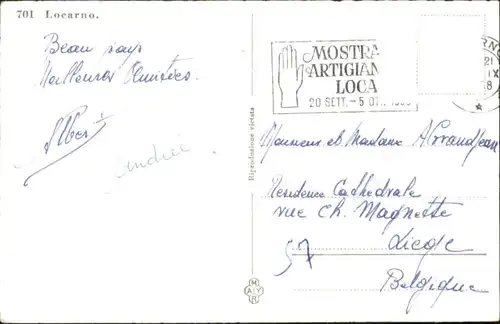 701 Locarno.
Beau pays
Meilleures Amitiés.
Albert
Andrée
Riproduzione vietata
MAYR
MOSTRA
ARTIGIAN
LOCA
20 SETT. - 5 OTT.
RNO
21
IX
8
Monsieur et Madame
Residence Cathedrale
rue Ch. Magnette
57 Liege
Belgique